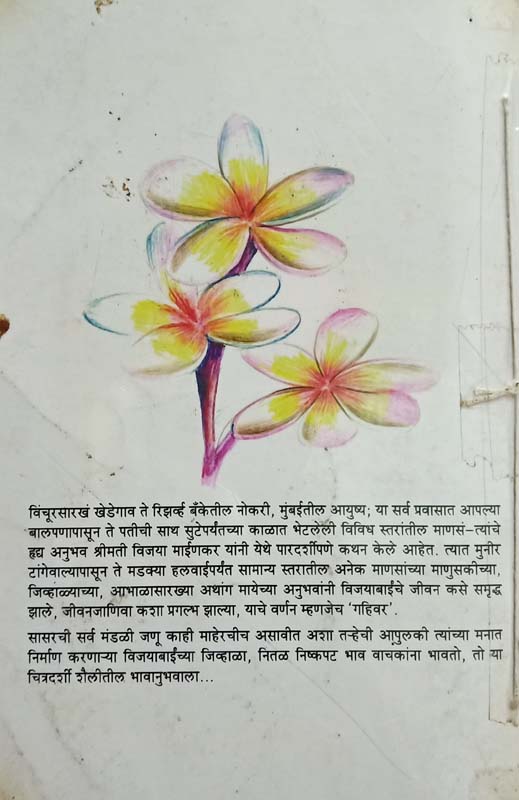 विंचूरसारखं खेडेगाव ते रिझर्व्ह बँकेतील नोकरी, मुंबईतील आयुष्य; या सर्व प्रवासात आपल्या
बालपणापासून ते पतीची साथ सुटेपर्यंतच्या काळात भेटलेली विविध स्तरांतील माणसं–त्यांचे
हृद्य अनुभव श्रीमती विजया माईणकर यांनी येथे पारदर्शीपणे कथन केले आहेत. त्यात मुनीर
टांगेवाल्यापासून ते मडक्या हलवाईपर्यंत सामान्य स्तरातील अनेक माणसांच्या माणुसकीच्या,
जिव्हाळ्याच्या, आभाळासारख्या अथांग मायेच्या अनुभवांनी विजयाबाईंचे जीवन कसे समृद्ध
झाले, जीवनजाणिवा कशा प्रगल्भ झाल्या, याचे वर्णन म्हणजेच ‘गहिवर’.
सासरची सर्व मंडळी जणू काही माहेरचीच असावीत अशा तऱ्हेची आपुलकी त्यांच्या मनात
निर्माण करणाऱ्या विजयाबाईंच्या जिव्हाळा, नितळ निष्कपट भाव वाचकांना भावतो, तो या
चित्रदर्शी शैलीतील भावानुभवाला...